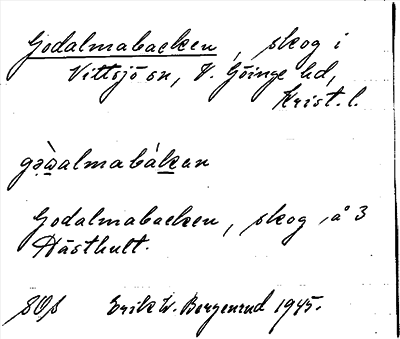 Godalmabacken, skog i
Vittsjö sn, V. Göinge hd,
Krist. l.
gə̀ɷalmabàkan
Godalmabacken, skog, å 3
Hästhult.
SOf Erik W. Bergenrud 1945.